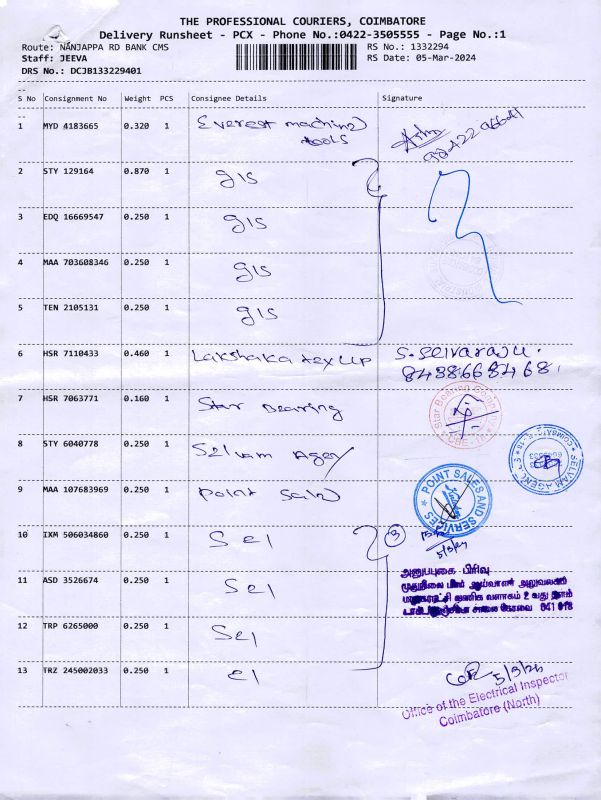 THE PROFESSIONAL COURIERS, COIMBATORE
Delivery Runsheet - PCX - Phone No.:0422-3505555 - Page No.:1
Route: NANJAPPA RD BANK CMS RS No.: 1332294
Staff: JEEVA RS Date: 05-Mar-2024
DRS No.: DCJB133229401
S No Consignment No Weight PCS Consignee Details Signature
1 MYD 4183665 0.320 1 Everest machine tools
2 STY 129164 0.870 1 gis
3 EDQ 16669547 0.250 1 gis
4 MAA 703608346 0.250 1 gis
5 TEN 2105131 0.250 1 gis
6 HSR 7110433 0.460 1 Lakshaka tex up S. Selvaraju.
8438668468
7 HSR 7063771 0.160 1 Star Bearing
Star Bearing
CBE
8 STY 6040778 0.250 1 Selvam Agey
SELVAM AGENT
COIMBATO
9 MAA 107683969 0.250 1 Point Sale
POINT SALES AND SERVICES
10 IXM 506034860 0.250 1 Sel 3
5/3/24
அனுப்புகை பிரிவு
11 ASD 3526674 0.250 1 Sel
முதுநிலை மின் ஆய்வாளர் அலுவலகம்
வணிக வளாகம் 2 வது தளம்
சாலை கோவை 641 018
12 TRP 6265000 0.250 1 Sel
13 TRZ 245002033 0.250 1 El
5/3/24
Office of the Electrical Inspector
Coimbatore (North)